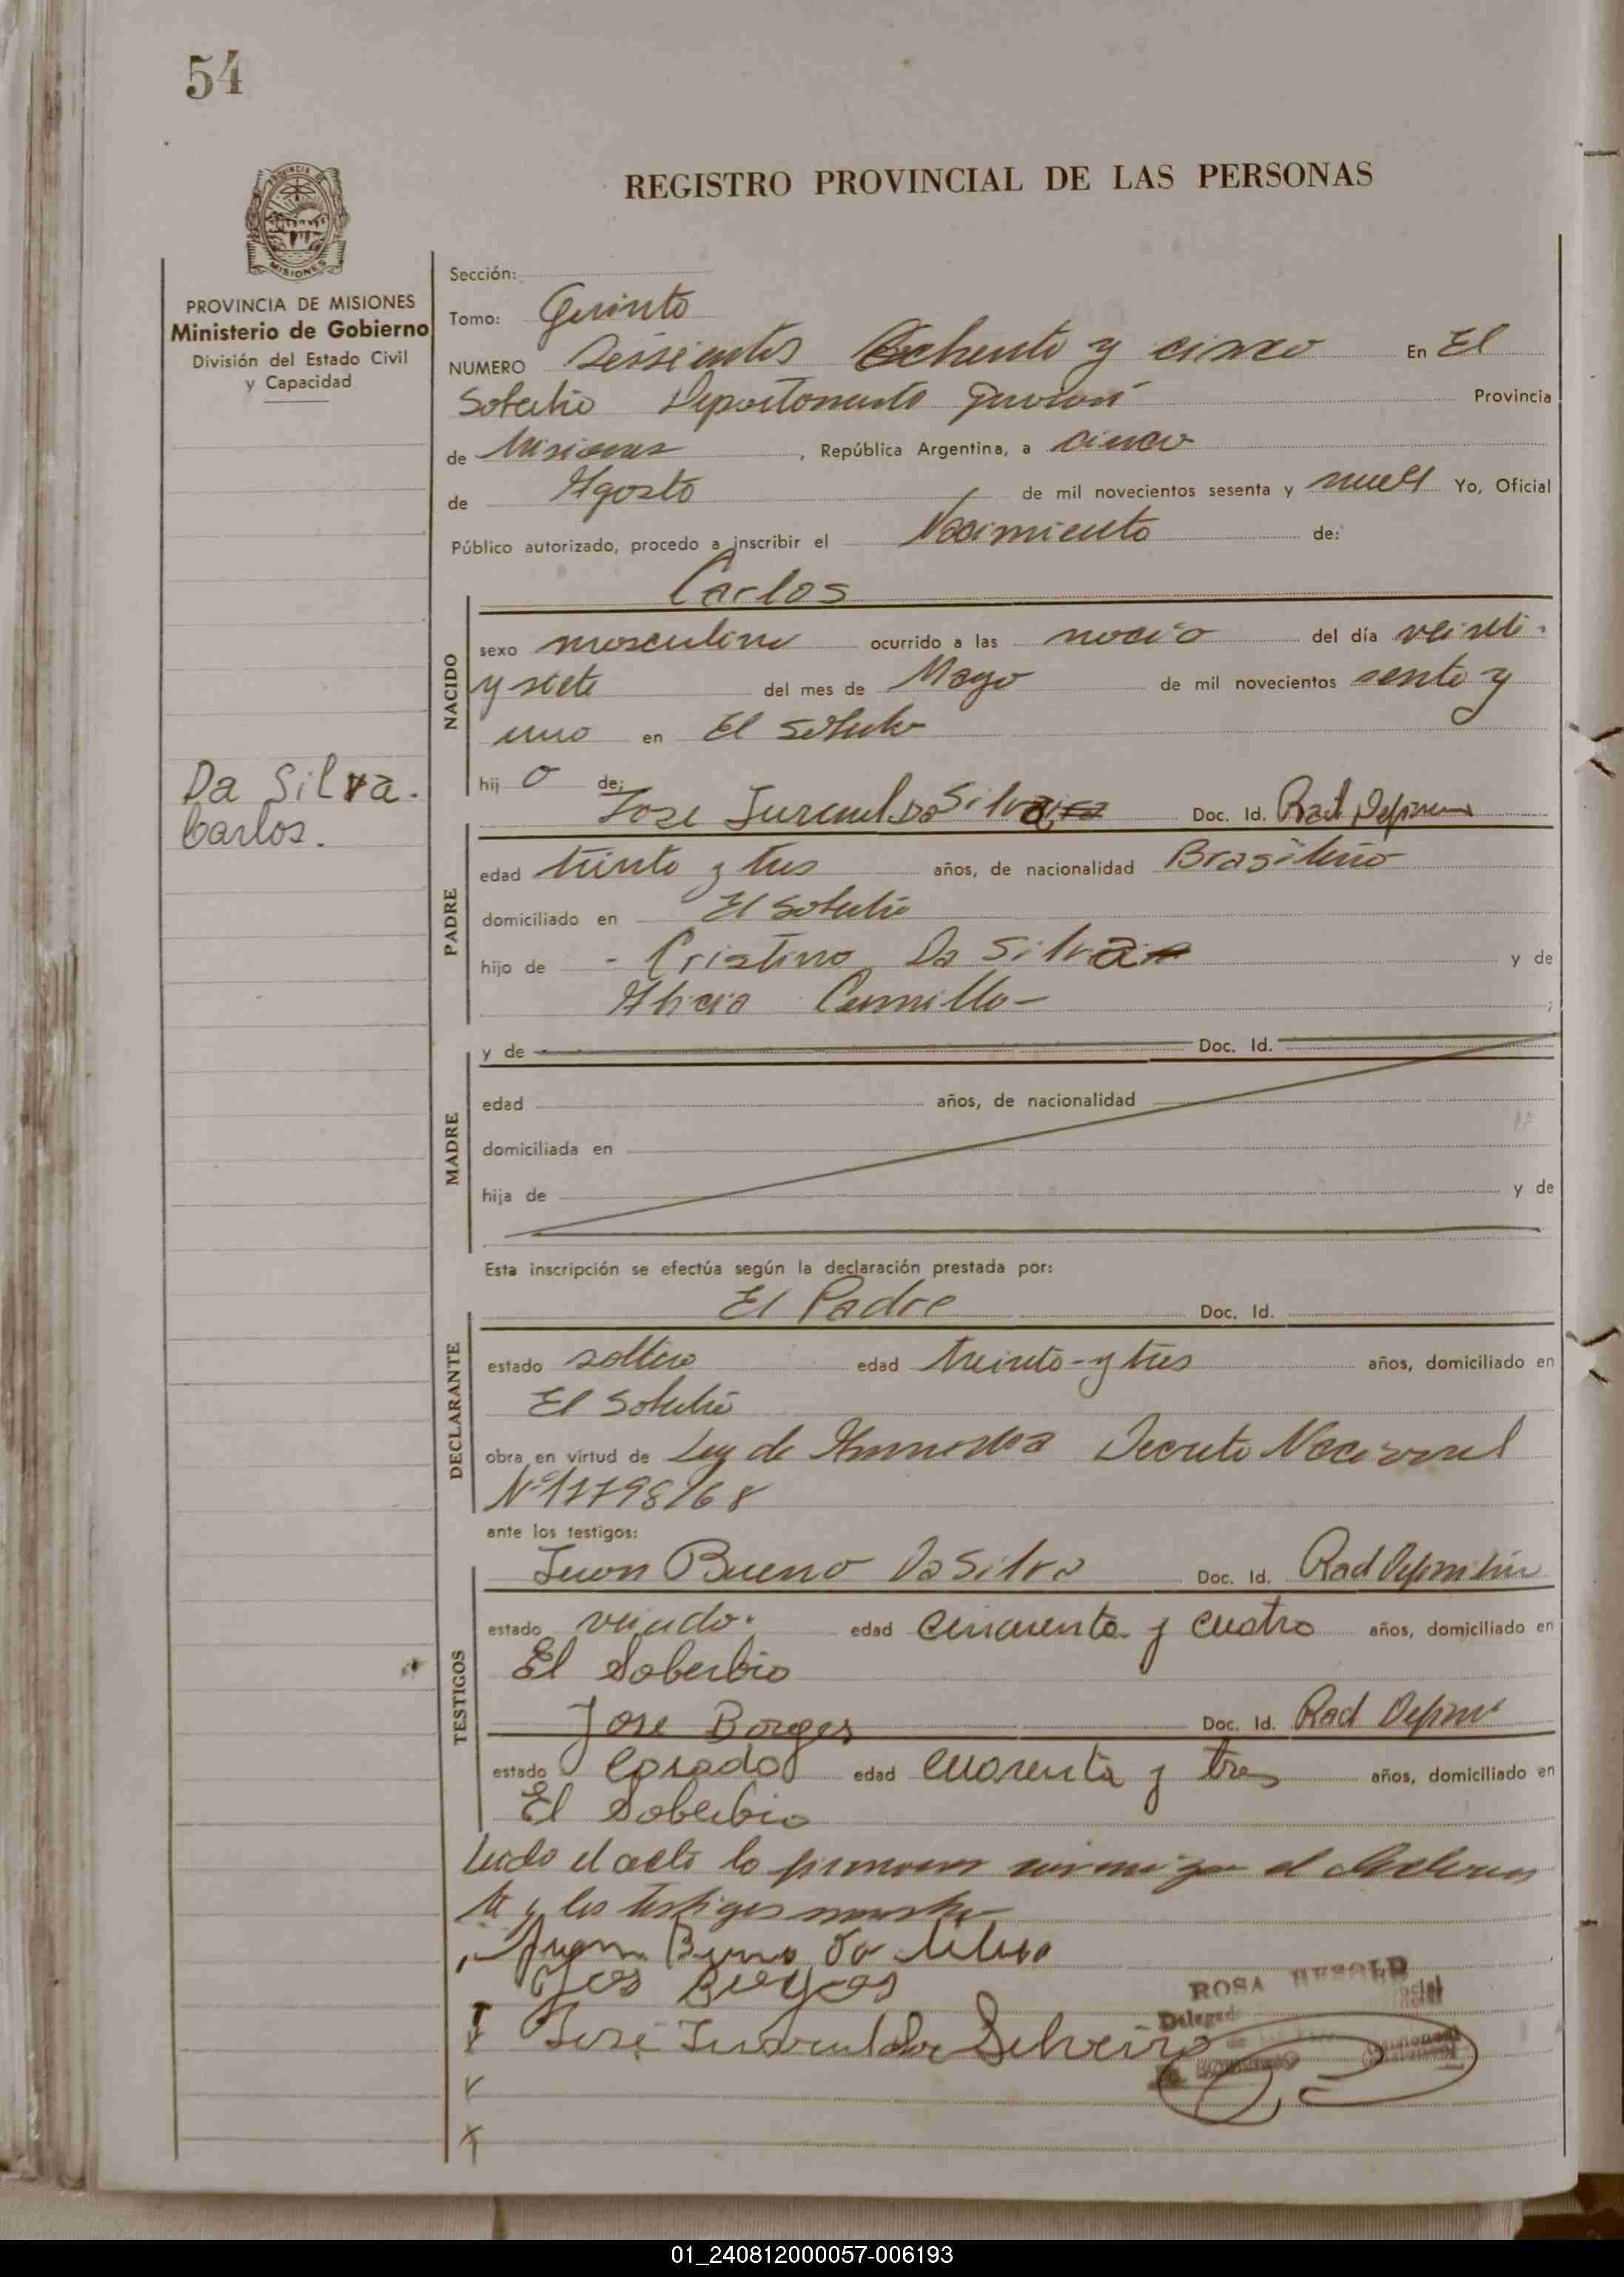 54
REGISTRO PROVINCIAL DE LAS PERSONAS
PROVINCIA DE MISIONES
MISIONES
PROVINCIA DE MISIONES
Ministerio de Gobierno
División del Estado Civil
y Capacidad
Da Silva.
Carlos.
Sección:
Tomo: Quinto
NUMERO Seissientos Ochenta y cinco En El
Soberbio Departamento Guaraní Provincia
de Misiones, República Argentina, a cinco
de Agosto de mil novecientos sesenta y nueve Yo, Oficial
Público autorizado, procedo a inscribir el Nacimiento de:
Carlos
NACIDO
sexo masculino ocurrido a las del día veinti
y siete del mes de Mayo de mil novecientos senta y
uno en El Soberbio
hij o de:
Jose Da Silva Doc. Id. Rad
PADRE
edad treinta y tres años, de nacionalidad Brasileño
domiciliado en El Soberbio
hijo de - Cristino Da Silva y de
Alicia
MADRE
y de Doc. Id.
edad años, de nacionalidad
domiciliada en
hija de y de
Esta inscripción se efectúa según la declaración prestada por:
El Padre Doc. Id.
DECLARANTE
estado soltero edad treinta-y tres años, domiciliado en
El Soberbio
obra en virtud de Ley de Decreto Nacional
Nº 17798/68
ante los testigos:
Juan Bueno Da Silva Doc. Id. Rad
TESTIGOS
estado viudo. edad cincuenta y cuatro años, domiciliado en
El Soberbio
Jose Borges Doc. Id. Rad
estado Casado edad cuarenta y tres años, domiciliado en
El Soberbio
Leido el acta lo firmaron el
y los testigos
Juan Bueno da
Jose da Silveiro
ROSA
01_240812000057-006193